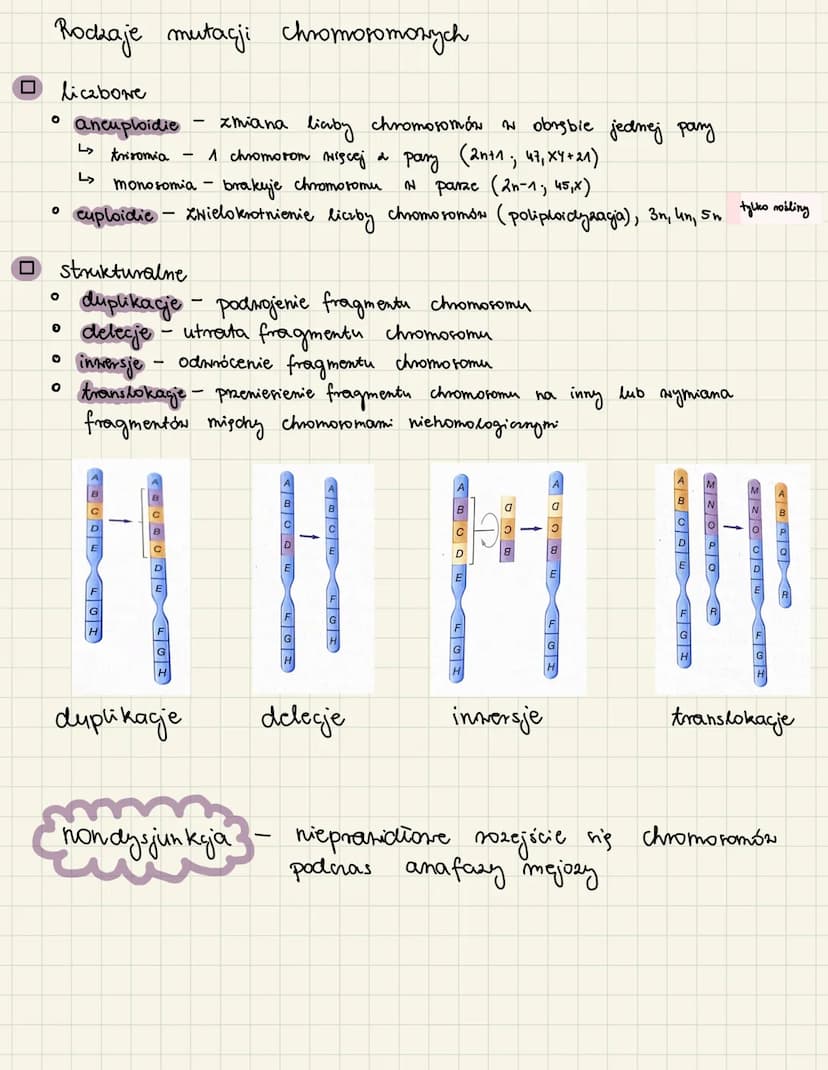 Rodzaje mutacji chromosomowych
liczbowe
aneuploidie – zmiana liczby chromosomów w obrębie jednej pary
↳ trisomia – 1 chromosom więcej z pary (2n+1; 47, XY+21)
↳ monosomia – brakuje chromosomu w parze (2n-1; 45,X)
euploidie – zwielokrotnienie liczby chromosomów (poliploidyzacja), 3n, 4n, 5n tylko rośliny
strukturalne
duplikacje – podwojenie fragmentu chromosomu
delecje – utrata fragmentu chromosomu
inwersje – odwrócenie fragmentu chromosomu
translokacje – przeniesienie fragmentu chromosomu na inny lub wymiana
fragmentów między chromosomami niehomologicznymi
A B C D E F G H
A B C B C D E F G H
A B C D E F G H
A B C E F G H
A B C D E F G H
D C B
A D C B E F G H
A B C D E F G H
M N O P Q R
M N O C D E F G H
A B P Q R
duplikacje delecje inwersje translokacje
nondysjunkcja – nieprawidłowe rozejście się chromosomów
podczas anafazy mejozy